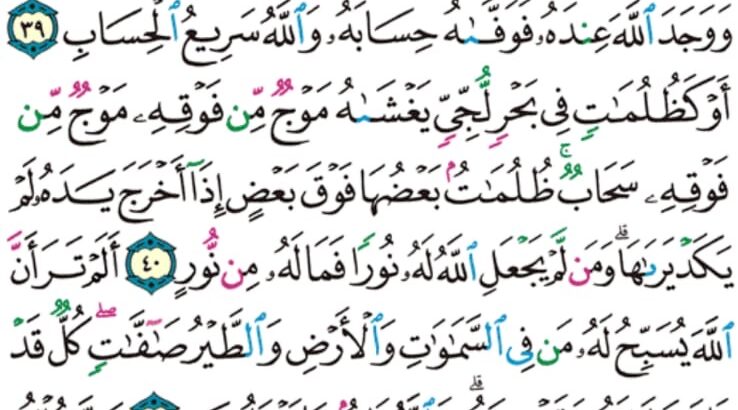 وَوَجَدَ ٱللَّهَ عِندَهُۥ فَوَفَّىٰهُ حِسَابَهُۥ وَٱللَّهُ سَرِيعُ ٱلْحِسَابِ ٣٩
أَوْ كَظُلُمَٰتٍ فِى بَحْرٍ لُّجِّىٍّ يَغْشَىٰهُ مَوْجٌ مِّن فَوْقِهِۦ مَوْجٌ مِّن
فَوْقِهِۦ سَحَابٌ ۚ ظُلُمَٰتٌۢ بَعْضُهَا فَوْقَ بَعْضٍ إِذَآ أَخْرَجَ يَدَهُۥ لَمْ
يَكَدْ يَرَىٰهَا ۗ وَمَن لَّمْ يَجْعَلِ ٱللَّهُ لَهُۥ نُورًا فَمَا لَهُۥ مِن نُّورٍ ٤٠ أَلَمْ تَرَ أَنَّ
ٱللَّهَ يُسَبِّحُ لَهُۥ مَن فِى ٱلسَّمَٰوَٰتِ وَٱلْأَرْضِ وَٱلطَّيْرُ صَٰٓفَّٰتٍ ۖ كُلٌّ قَدْ